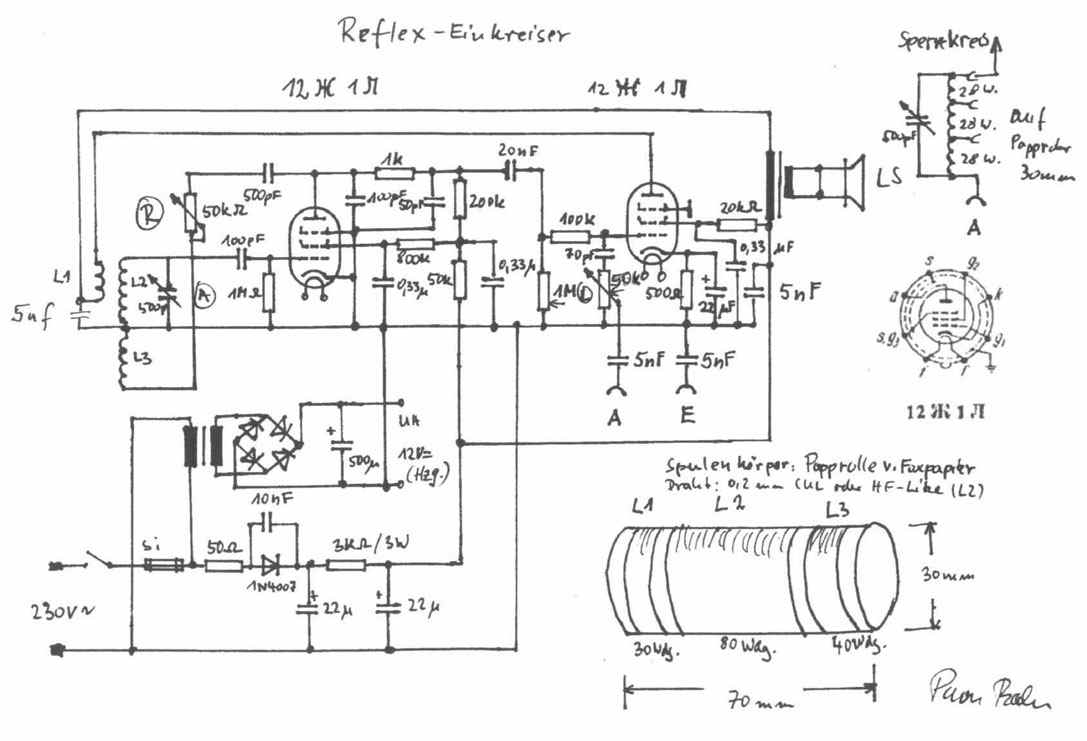 Reflex-Einkreiser
12 Ж 1 Л
12 Ж 1 Л
Sperrkreis
28 W.
500pF
28 W.
28 W.
auf
Papprohr
30mm
A
20nF
1k
500pF
100pF
50pF
200k
R
50kΩ
LS
20kΩ
100k
100pF
800k
50k
0,33µ
70pF
50k
0,33 µF
L1
L2
500p
A
1MΩ
0,33µ
1M
500Ω
22µF
5nF
5nf
L3
5nF
5nF
A
E
s
g2
a
k
s,g3
g1
f
f
12 Ж 1 Л
UA
500µ
12V=
(Hzg.)
10nF
Spulenkörper: Papprolle v. Faxpapier
Draht: 0,2 mm CuL oder HF-Litze (L2)
L1
L2
L3
Si
50Ω
1N4007
3kΩ/3W
22µ
22µ
230V~
30mm
30Wdg.
80Wdg.
40Wdg.
70mm